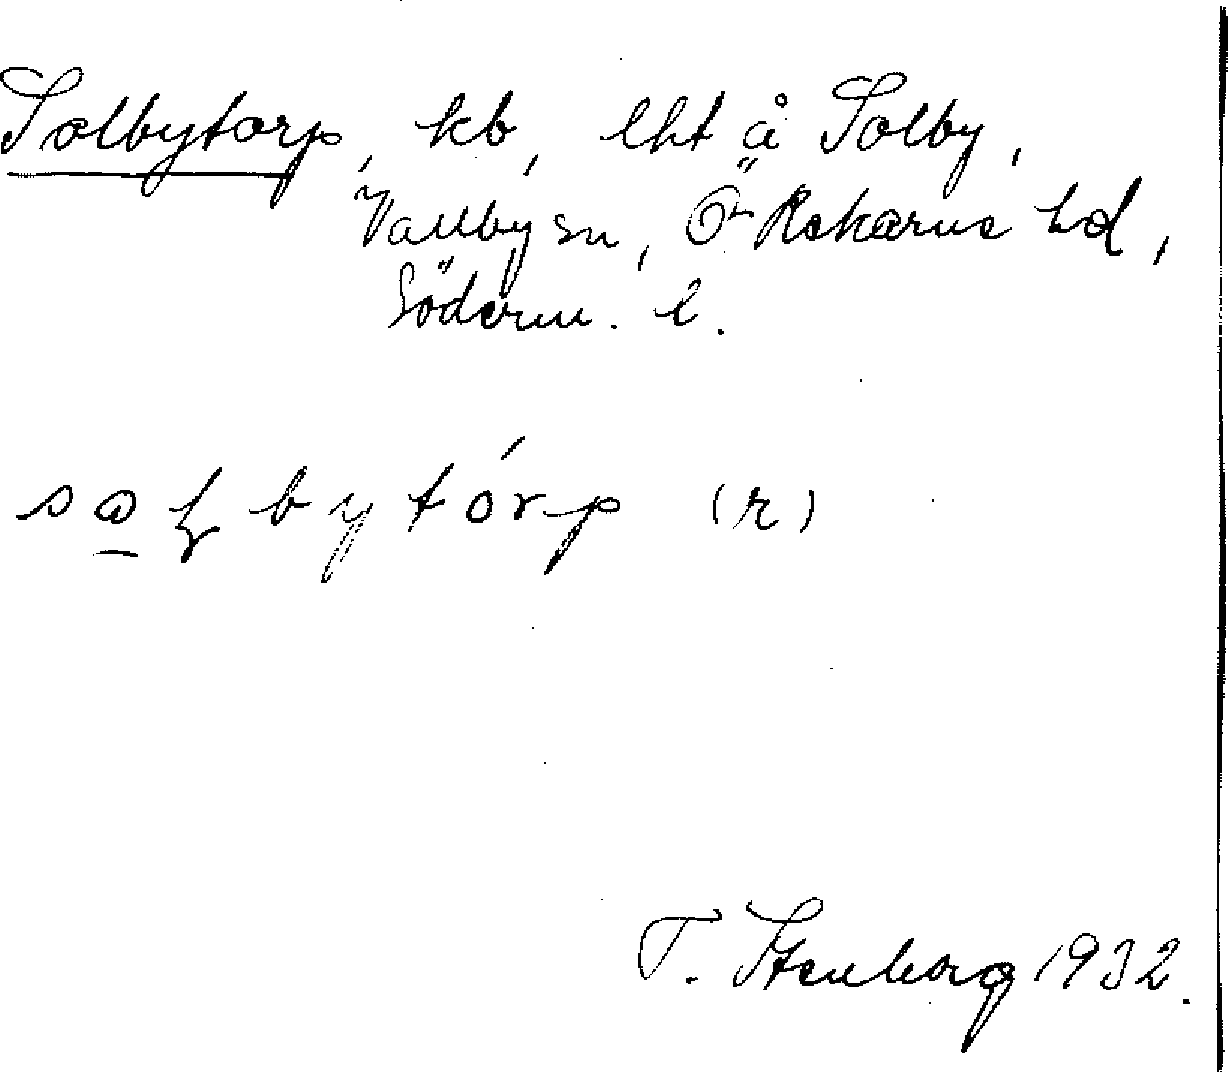 Solbytorp, kb, lht å Solby,
Vallby sn, Ö Rekarne hd,
Söderm. l.
sɷɫbytórp (r)
T. Stenborg 1932.